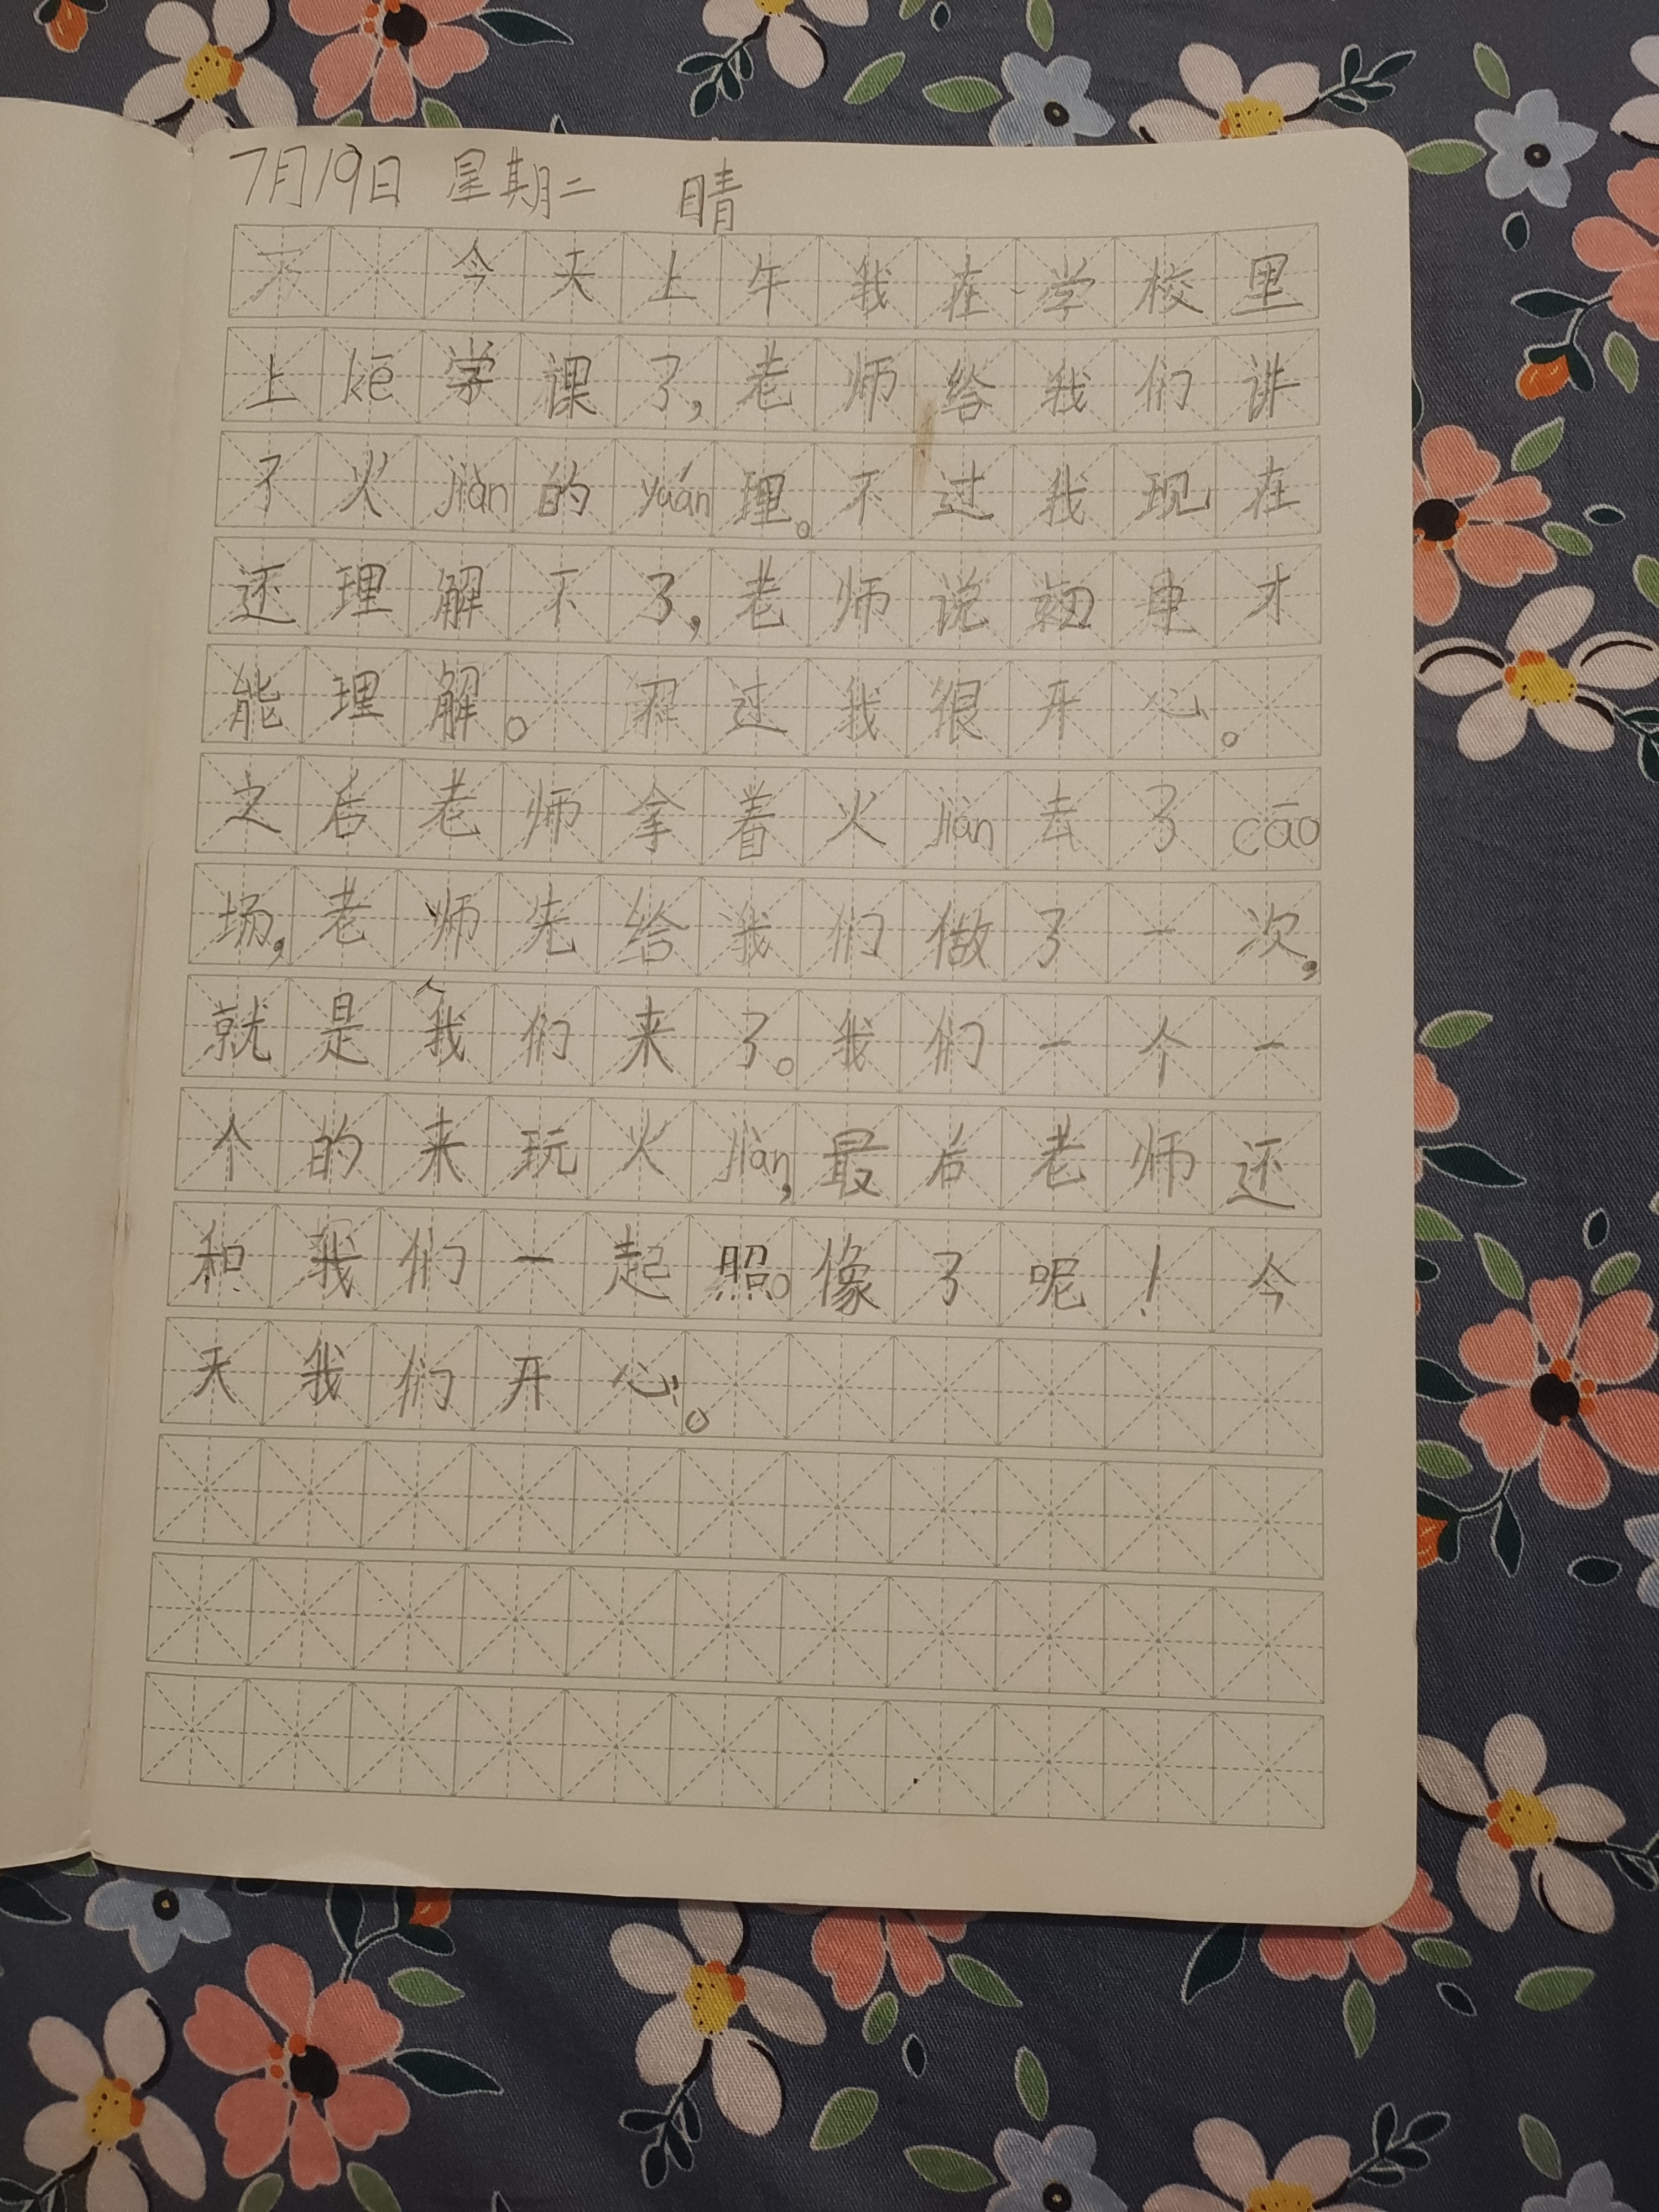 7月19日 星期二 晴
今天上午我在学校里
上kē学课了,老师给我们讲
了火jiàn的yuán理。不过我现在
还理解不了,老师说初中才
能理解。不过我很开心。
之后老师拿着火jiàn去了cāo
场,老师先给我们做了一次,
就是我们来了。我们一个一
个的来玩火jiàn,最后老师还
和我们一起照。像了呢!今
天我们开心。